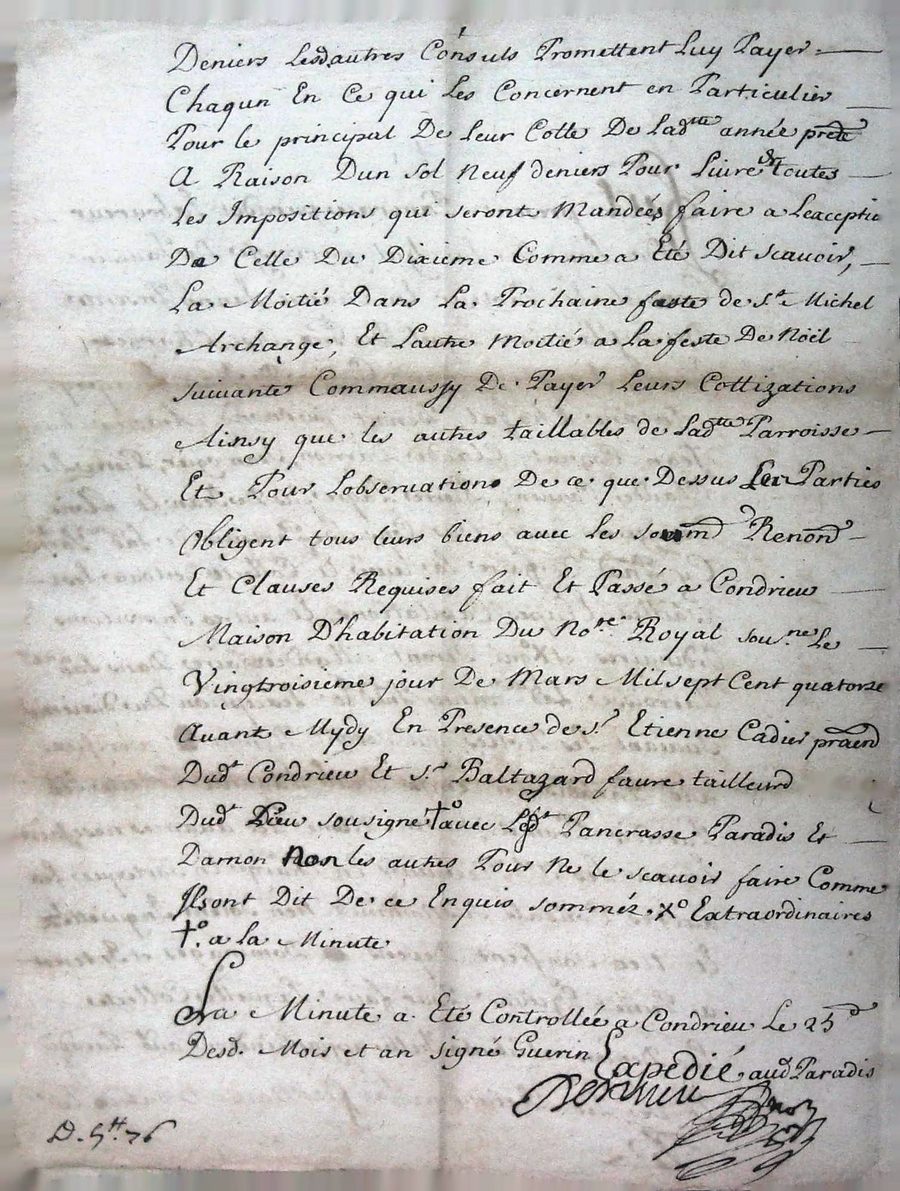 Deniers Lesdautres Consuls Promettent Luy Payer
Chaqun En Ce qui Les Concernent en Particulier
Pour le principal De Leur Cotte De Ladtte année prnte
A Raison Dun sol neuf deniers Pour Livre Et toutes
Les Impositions qui seront Mandees faire a Leaceptio
De Celle Du Dixieme Comme a Eté Dit scavoir,
La Moitié Dans La Prochaine feste de st Michel
Archange, Et Lautre Moitié a La feste De Noël
suivante Commaussy De Payer Leurs Cottizations
Ainsy que les autres taillables de Ladtte Parroisse
Et Pour Lobservation De ce que Dessus Les Parties
Obligent tous leurs biens avec Les Renond
Et Clauses Requises fait Et Passé a Condrieu
Maison D'habitation Du Nore Royal sousne Le
Vingtroisieme jour De Mars Mil sept Cent quatorze
avant Mydy En Presence de sr Etienne Cadier
Dudt Condrieu Et sr Baltazard faure tailleurd
Dudt Lieu sousigné †o avec Pancrasse Paradis Et
Damon non les autres Pour Ne le scavoir faire Comme
Ilsont Dit De ce Enquis sommés. Xo Extraordinaires
†o. a la Minute
La Minute a Eté Controllée a Condrieu Le 25
Desd. Mois et an signé Guerin Expedié audt Paradis